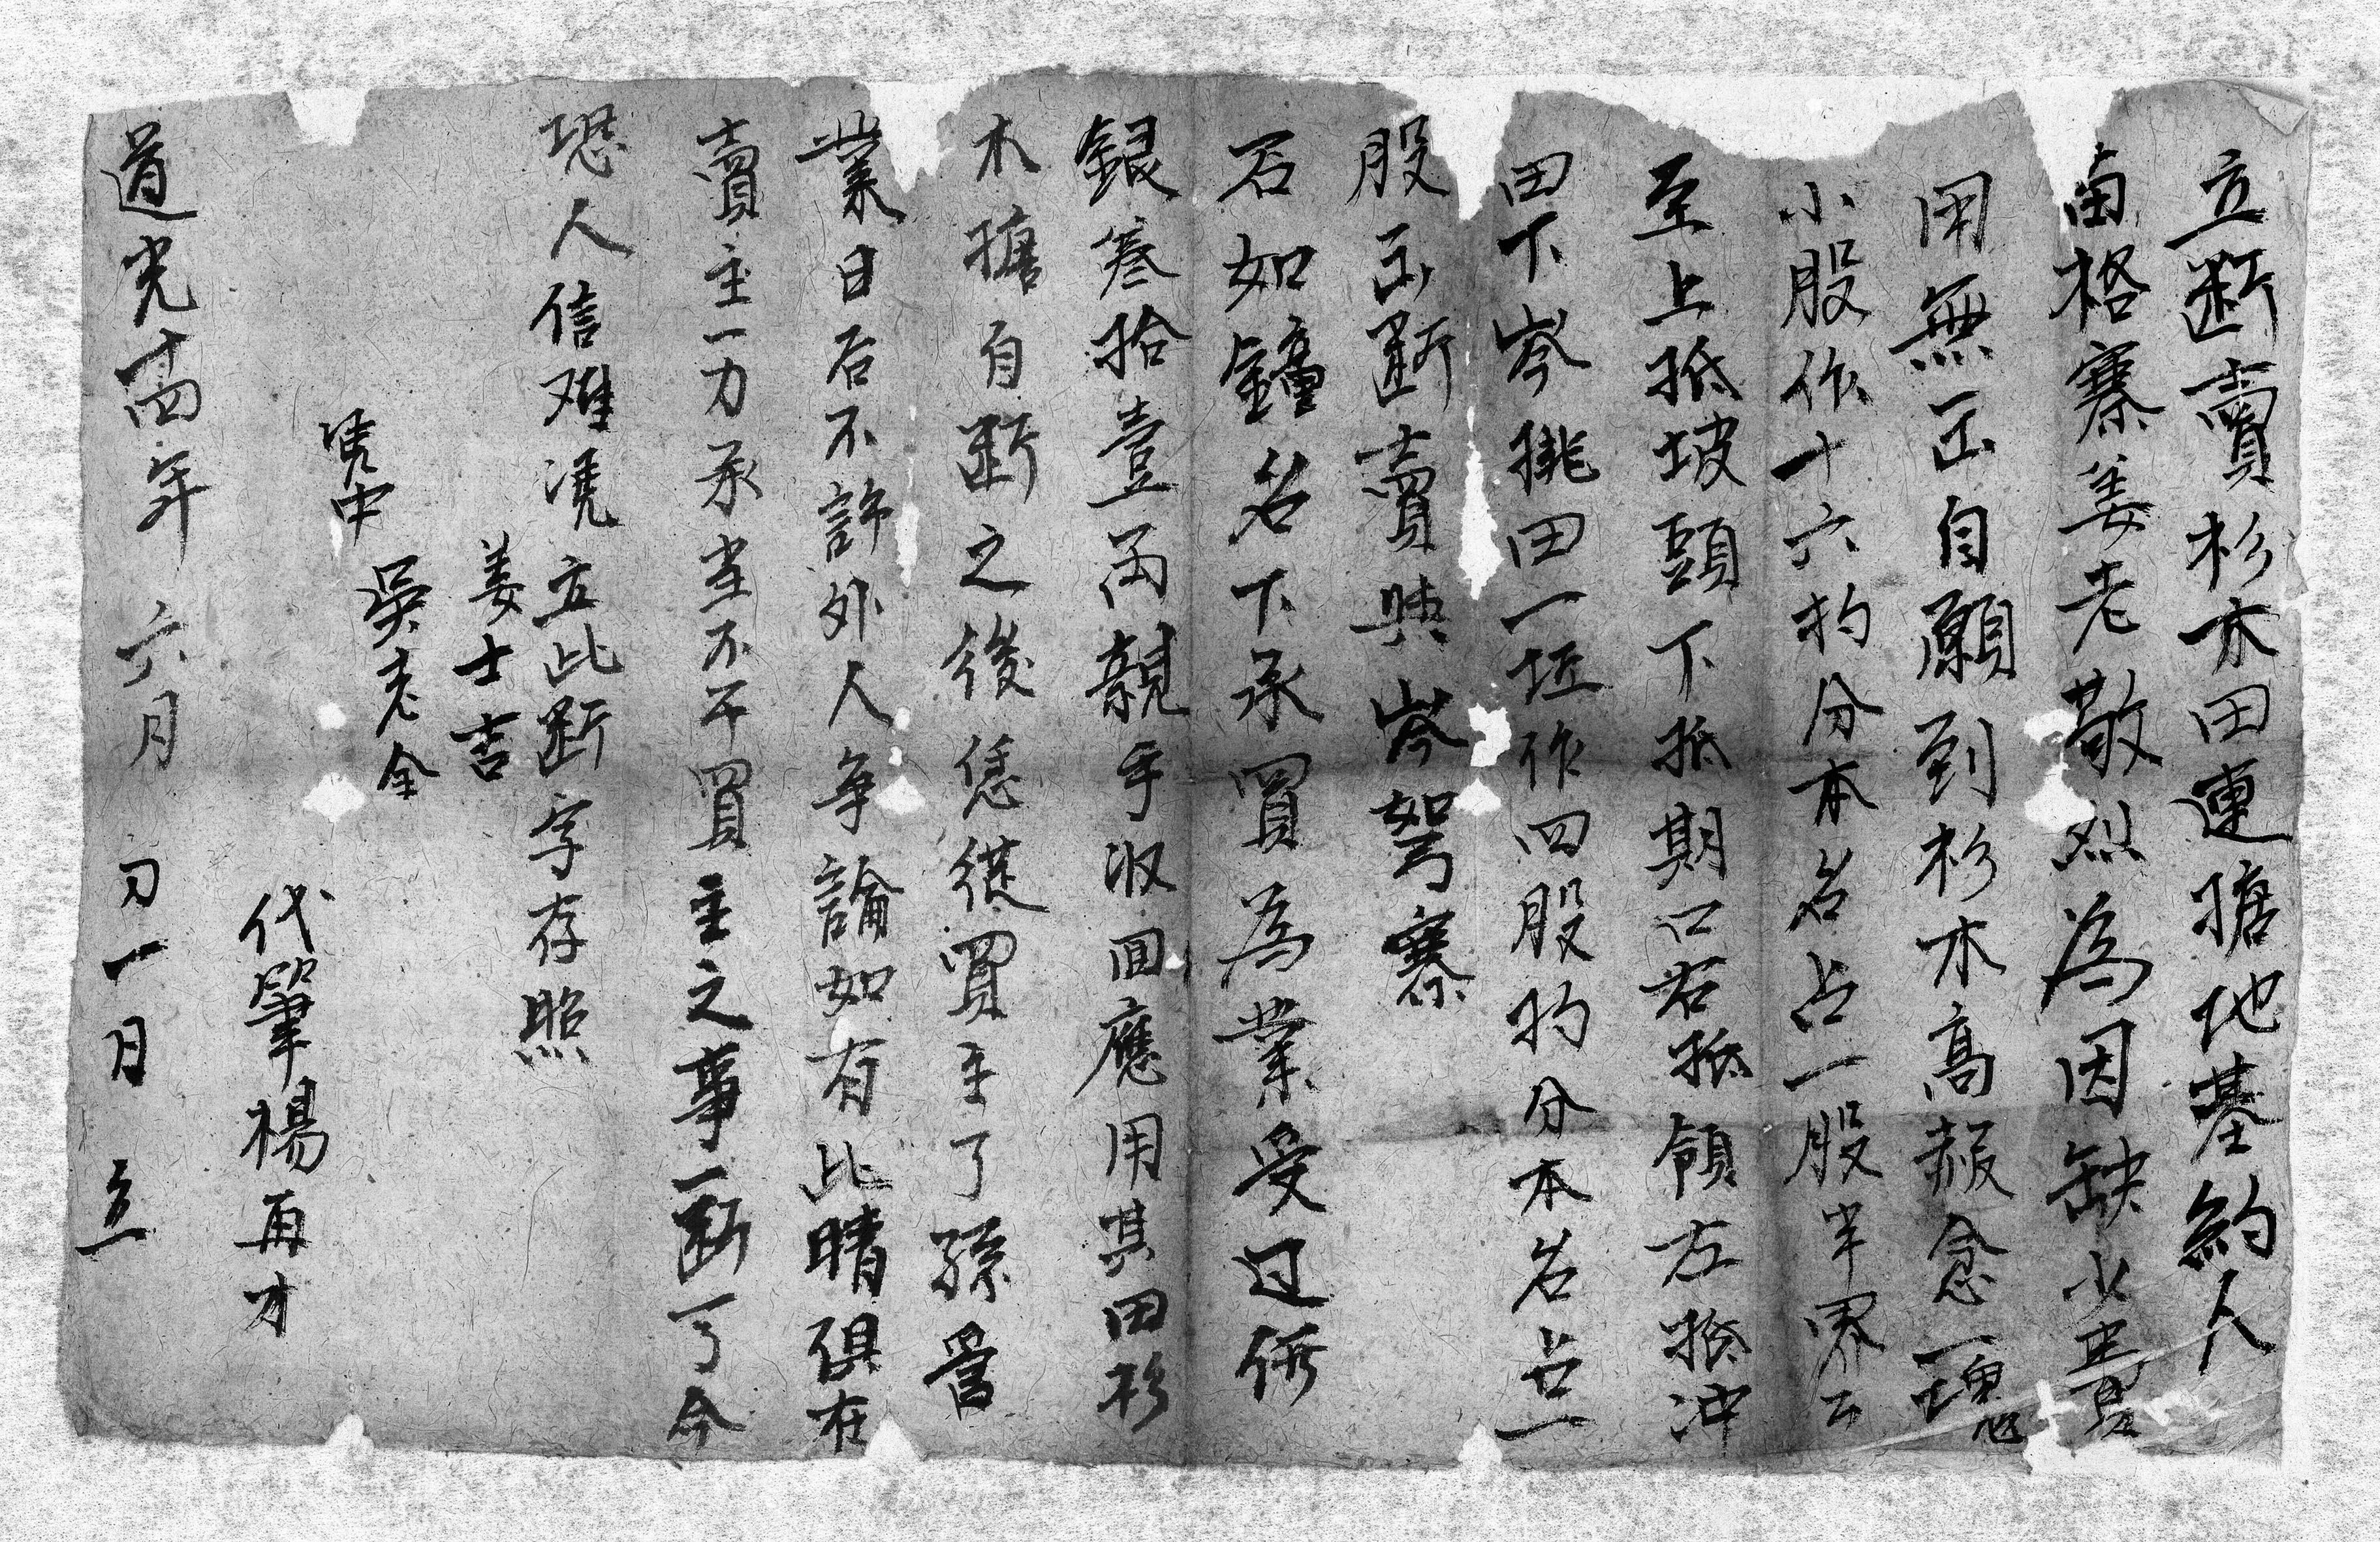 立断賣杉木田連搪地基約人
南格寨姜老敬烈為因缺少費
用無正自願到杉木高赧念一塊
小股作十六杓分本名占一股半界至
至上抵坡頭下抵期口右抵領左抵冲
田下岑挑田一坵作四股杓分本名占一
股正断賣與岑努寨
石如鐘名下承買為業受过價
銀叁拾壹両親手收回應用其田杉
木搪自断之後恁從買主了孫管
業日后不許外人争論如有此晴俱在
賣主一力承当不干買主之事一断了今
恐人信难凴立此断字存照
姜士吉
凴中 吳老全
代筆楊再才
道光十四年六月 初一日 立